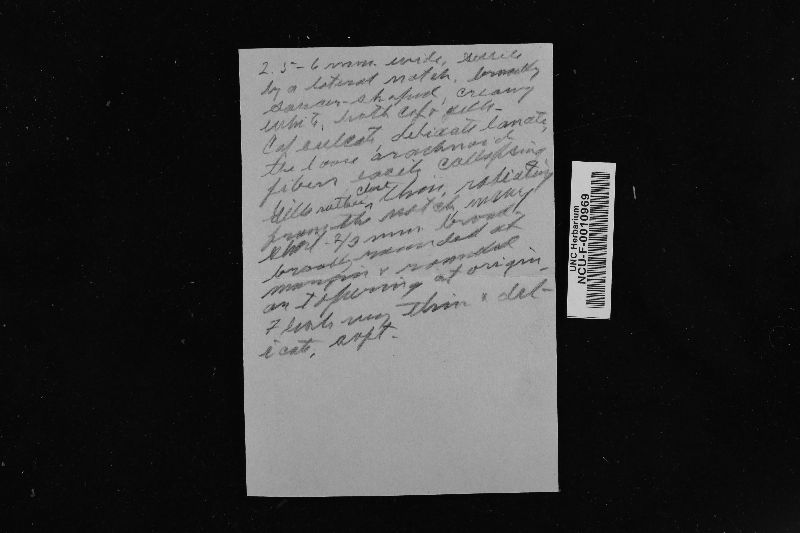 2.5-6 mm. wide, sessile
by a lateral notch, broadly
saucer-shaped, creamy
white, both cap & gills.
Cap sulcate, delicate lanate,
the loose arachnoid
fibers easily collapsing
Gills rather close thin, radiating
from the notch many
short - 2/3 mm broad,
broadly rounded at
margin & rounded
or tapering at origin.
Flesh very thin & del-
icate, soft.
UNC Herbarium
NCU-F-0010969